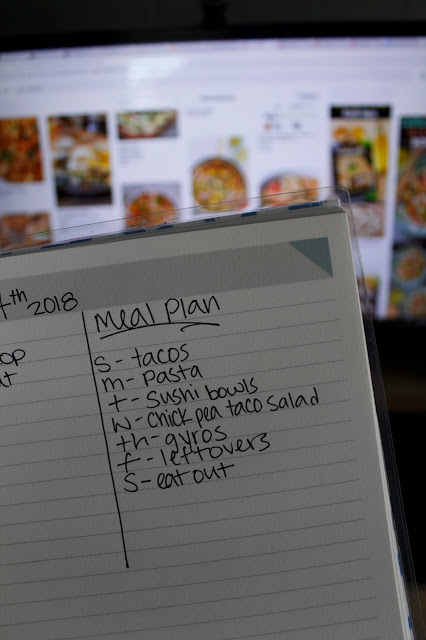 4th 2018
Meal Plan
S - tacos
m - pasta
t - sushi bowls
W - chick pea taco salad
th - gyros
f - leftovers
S - eat out